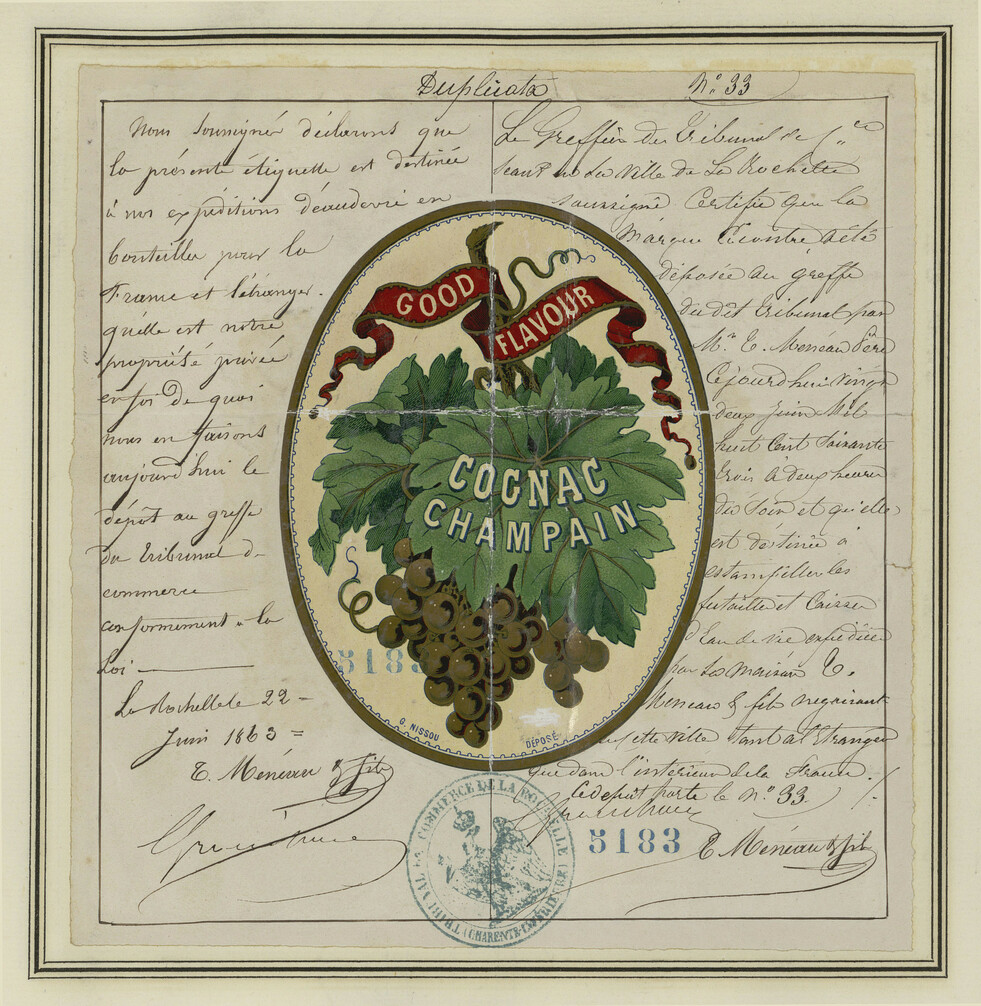 Duplicata
N.° 33
Nous soussignés déclarons que
la présente étiquette est destinée
à nos expéditions d'eaudevie en
bouteilles pour la
France et l'étranger.
qu'elle est notre
propriété privée
en foi de quoi
nous en faisons
aujourd'hui le
dépôt au greffe
du tribunal de
commerce
conformément à la
Loi
La Rochelle le 22
Juin 1863
E. Méneau & fils
Le Greffier du Tribunal de C.ce
seant en La Ville de La Rochelle
soussigné Certifie que la
Marque Cicontre a été
déposée au greffe
du dit tribunal par
M.r E. Meneau Père
Cejourd'hui vingt
deux Juin Mil
huit Cent Soixante
trois à deux heures
du Soir et qu'elle
est destinée à
estampiller les
futailles et Caisses
d'Eau de vie expédiées
par La Maison E.
Meneau & fils negociants
en cette ville tant a l'Etranger
que dans l'interieur de la France.
Ce depot porte le N.° 33
E. Méneau & fils
GOOD
FLAVOUR
COGNAC
CHAMPAIN
G. NISSOU
DÉPOSÉ
5183
5183
TRIBUNAL DE COMMERCE DE LA ROCHELLE
(CHARENTE-INFÉRIEURE)